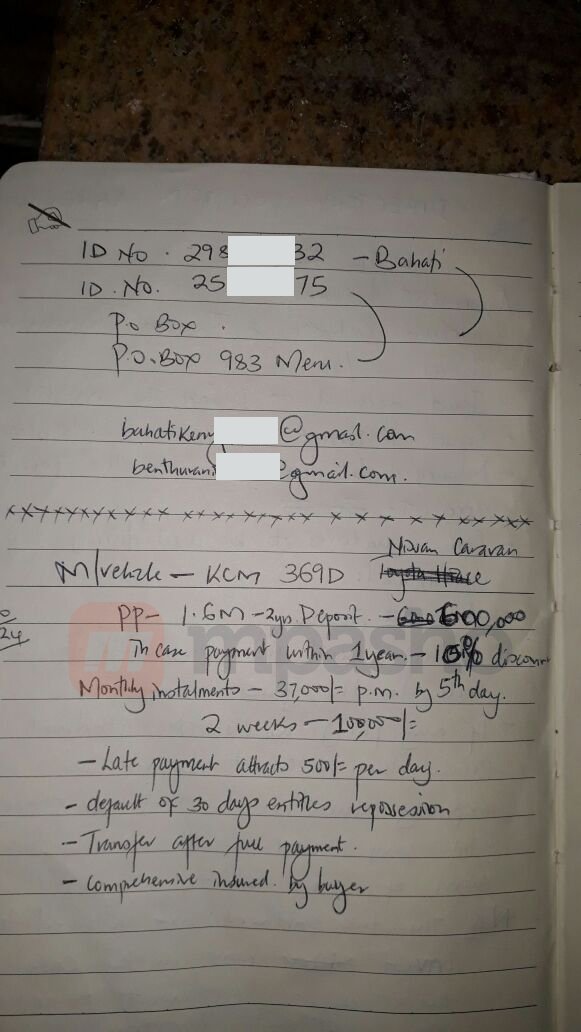 ID No. 298 32 - Bahati
ID. No. 25 75
P.o Box .
P.O.Box 983 Meru.
bahatikeny @gmail.com
benthurani @gmail.com.
xxxxxxxxxxxxxxxxxxxxxxxxxxxxxx
Nissan Caravan
M/vehicle - KCM 369D Toyota Hiace
PP- 1.6M - 2yrs. Deposit. - 600,000
24
In case payment within 1 year. - 10% discount
Monthly instalments - 37,000/= p.m. by 5th day.
2 weeks - 100,000/=
- Late payment attracts 500/= per day.
- default of 30 days entitles repossession
- Transfer after full payment.
- Comprehensive insured. by buyer
mpasho